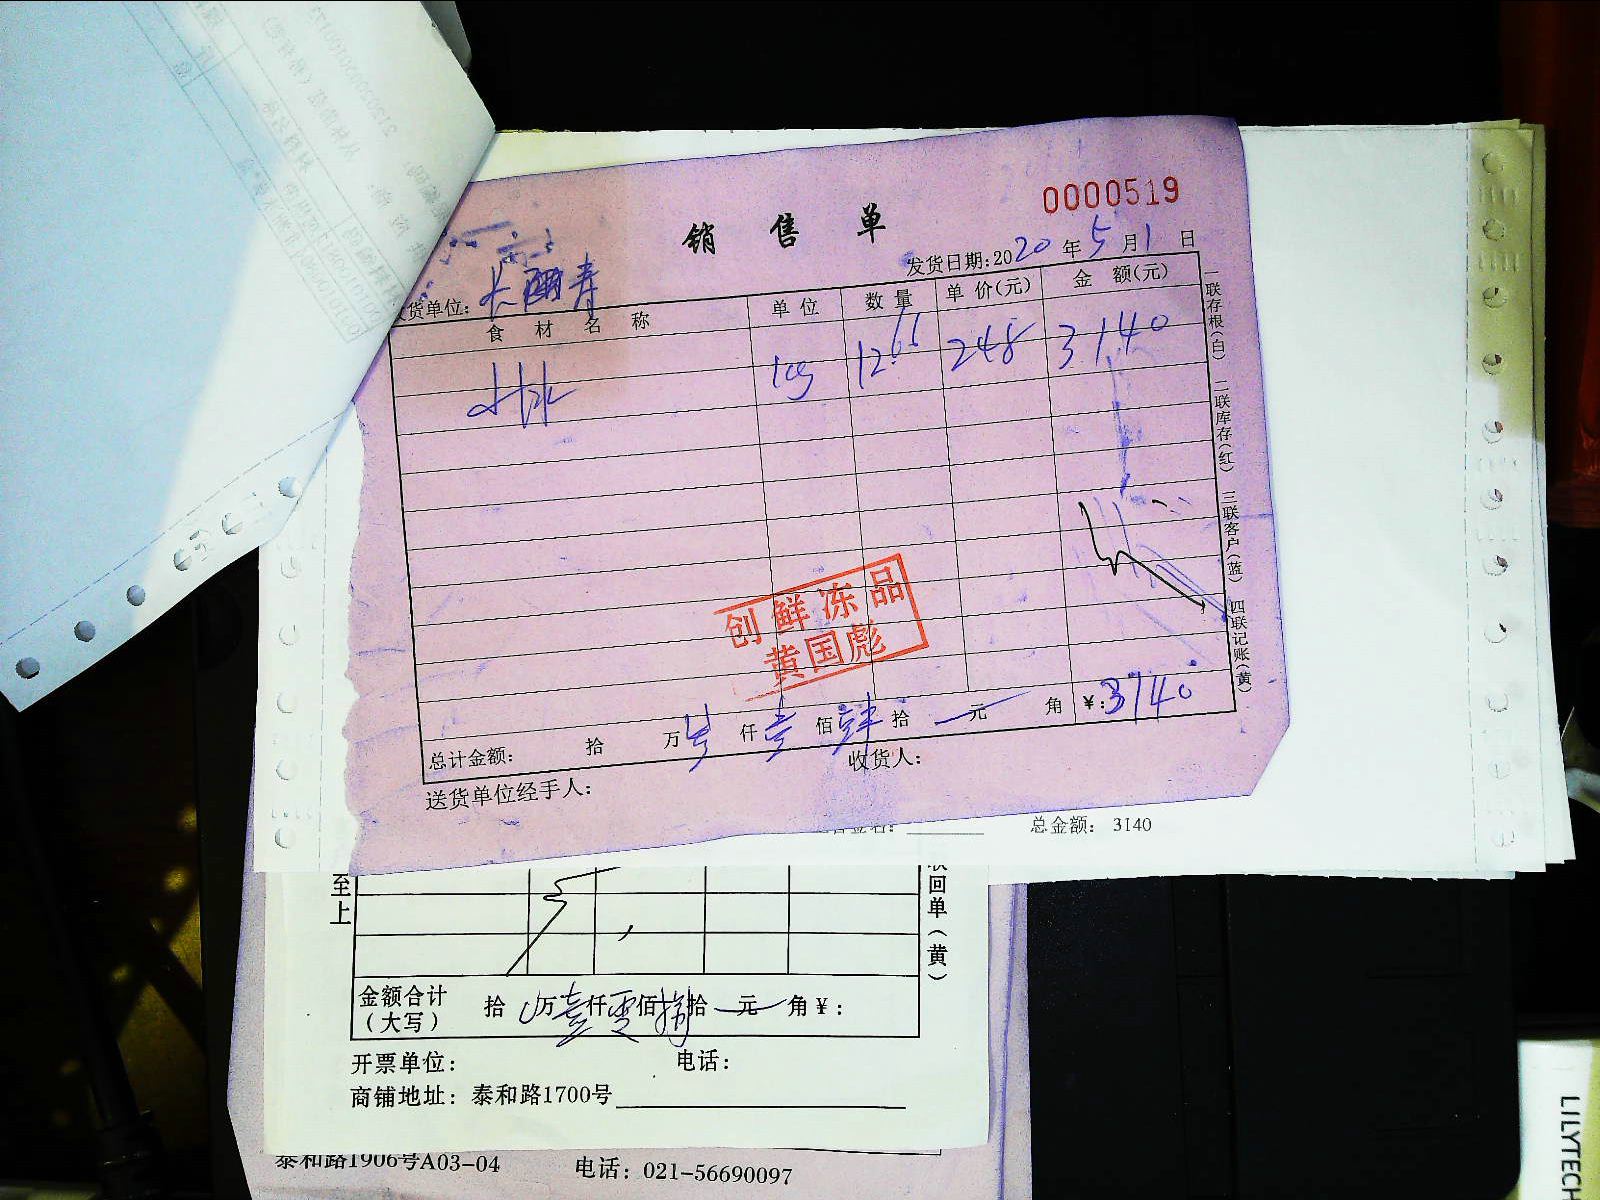 0000519
销售单
发货日期:2020年5月1日
货单位:
食材名称 单位 数量 单价(元) 金额(元)
kg 12.66 248 3140
一联存根(白) 二联库存(红) 三联客户(蓝) 四联记账(黄)
创鲜冻品
黄国彪
总计金额: 拾 万 仟壹佰肆拾 元 角 ¥:3140
送货单位经手人: 收货人:
总金额: 3140
至上
回单(黄)
金额合计(大写) 拾 万壹仟零佰捌拾 元 角¥:
开票单位: 电话:
商铺地址: 泰和路1700号
泰和路1906号A03-04 电话: 021-56690097
LILYTECH